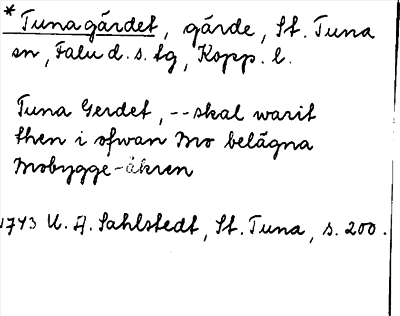 * Tunagärdet, gärde, St. Tuna
sn, Falu d. s. tg, Kopp. l.
Tuna Gerdet, -- skal warit
then i ofwan Mo belägna
Mobygge-åkren
1743 U. A. Sahlstedt, St. Tuna, s. 200.